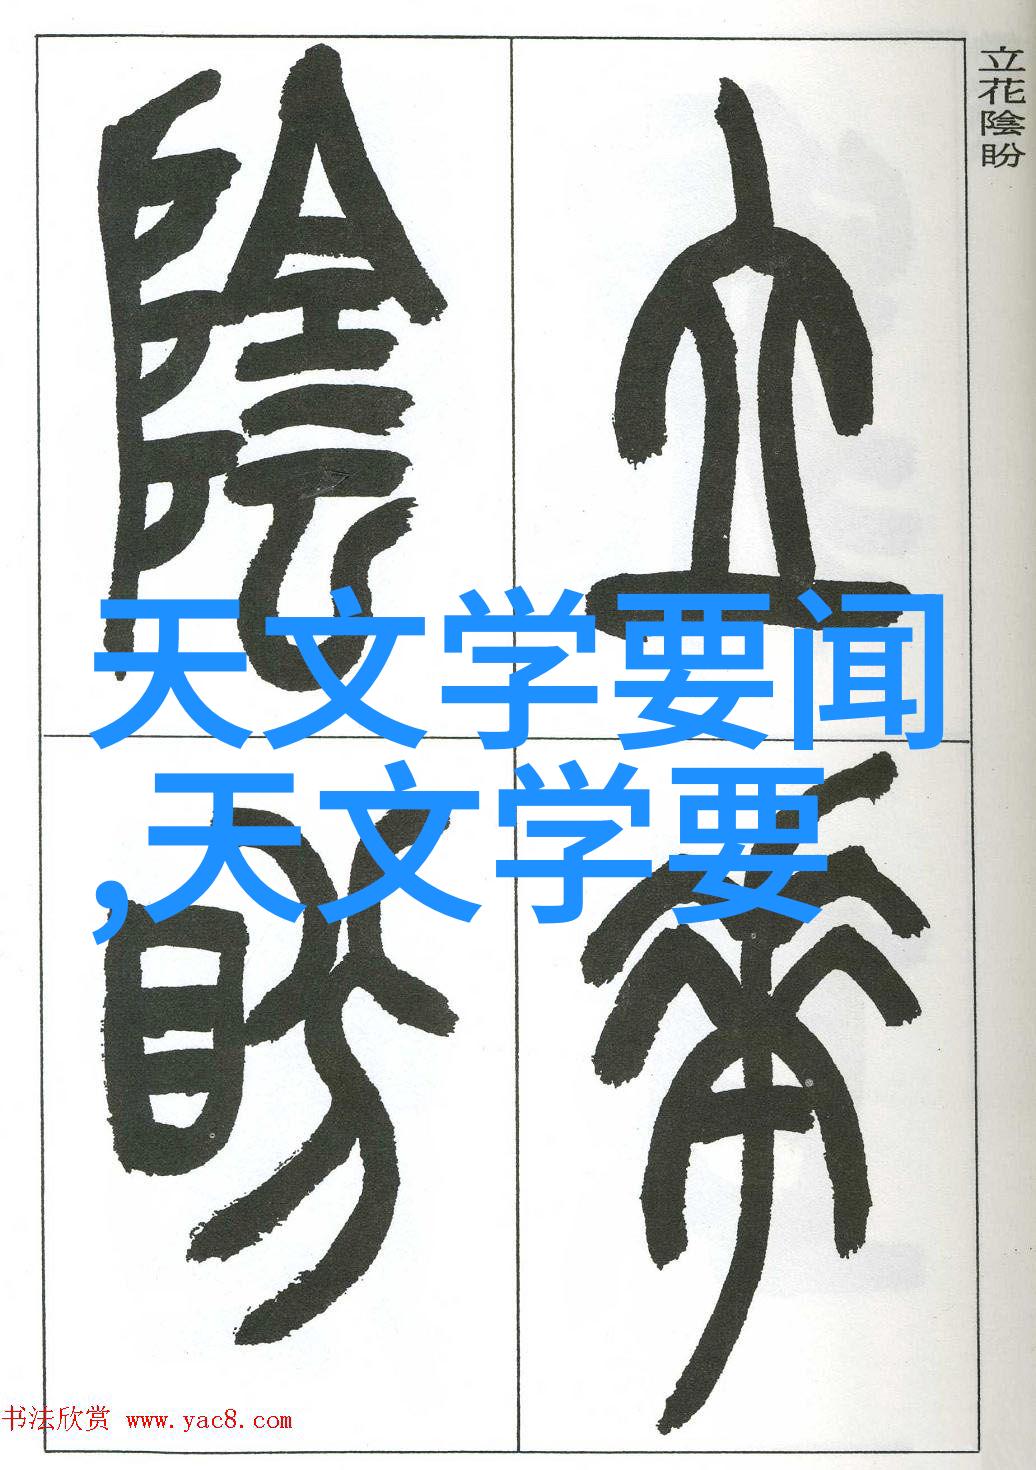 立花陰盼
立
花
陰
盼
天文学要闻
,天文学要
书法欣赏 www.yac8.com